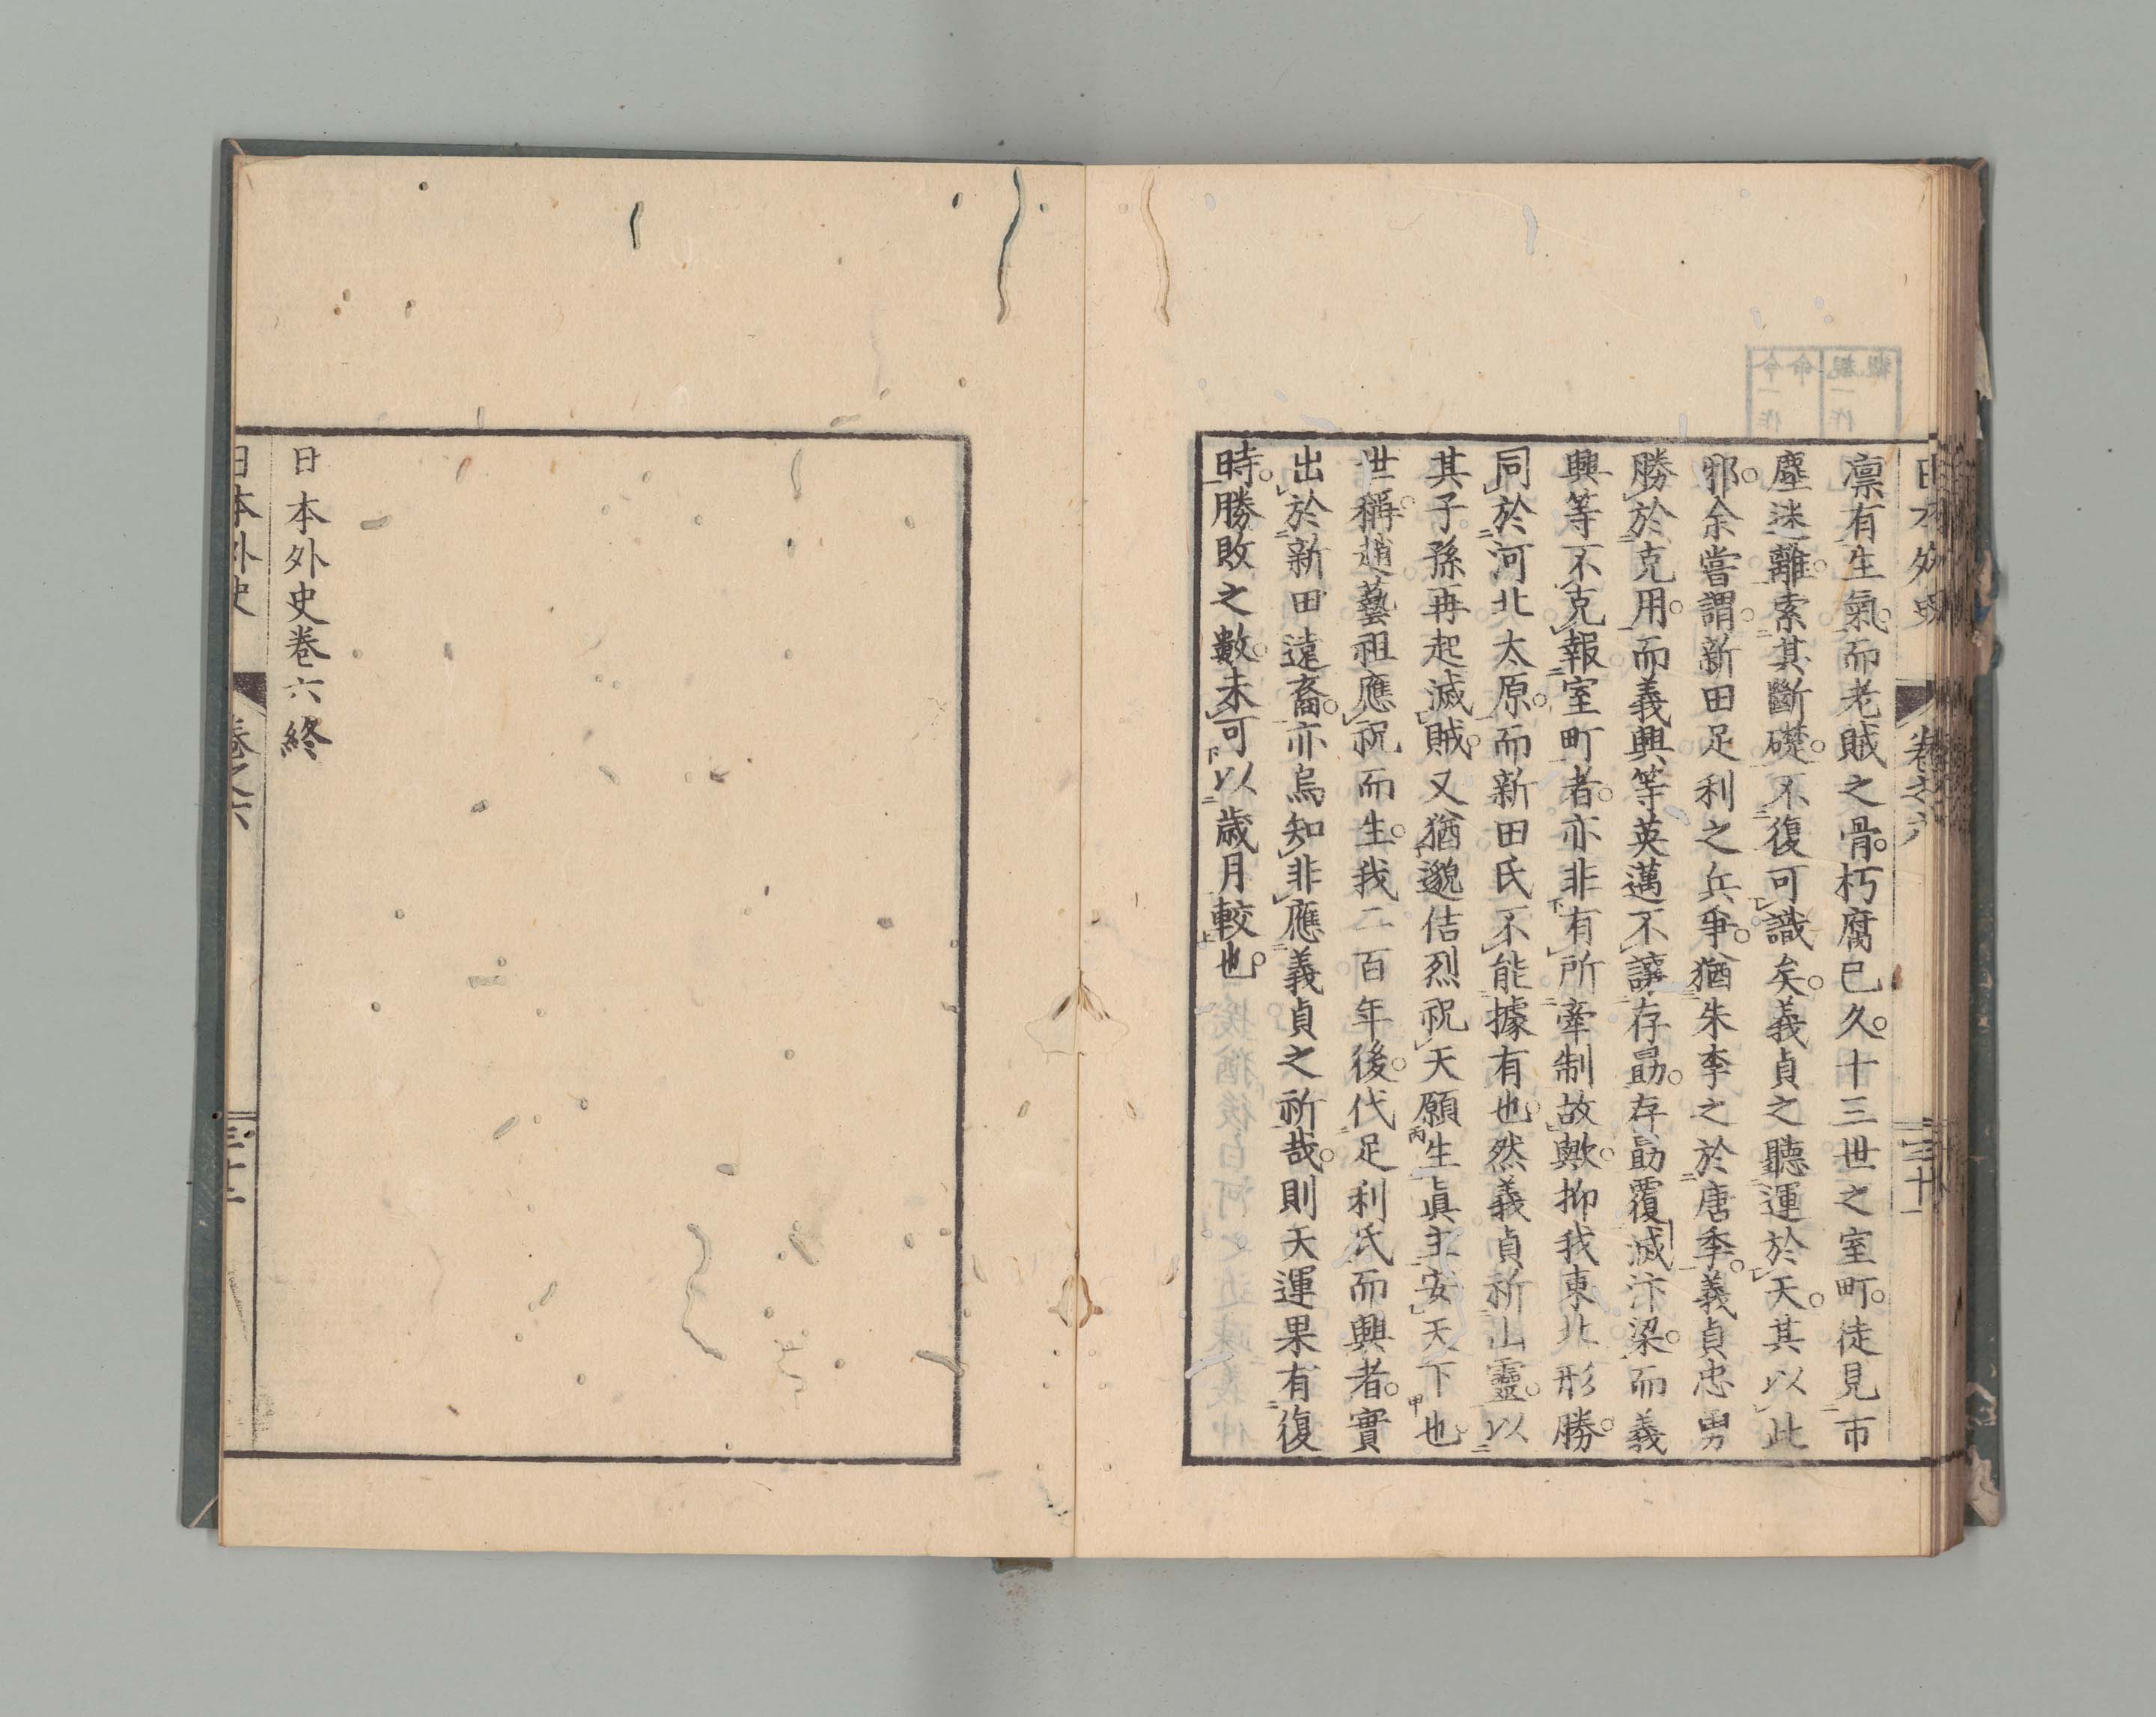 凛有生氣。而老賊之骨。朽腐已久。十三世之室町。徒見市
塵迷離。索其斷礎。不復可識矣。義貞之聽運於天。其以此
邪。余嘗謂。新田足利之兵爭。猶朱李之於唐季。義貞忠勇
勝於克用。而義興等英邁不讓存勗。存勗覆滅汴梁。而義
興等不克報室町者。亦非有所牽制故歟。抑我東北形勝。
同於河北太原。而新田氏不能據有也。然義貞祈山靈。以
其子孫再起滅賊。又猶邈佶烈祝天願生眞主安天下也。
世稱。趙藝祖應祝而生。我二百年後。代足利氏而興者。實
出於新田遠裔。亦烏知非應義貞之祈哉。則天運果有復
時。勝敗之數。未可以歳月較也。
日本外史卷六終
日本外史
卷之六